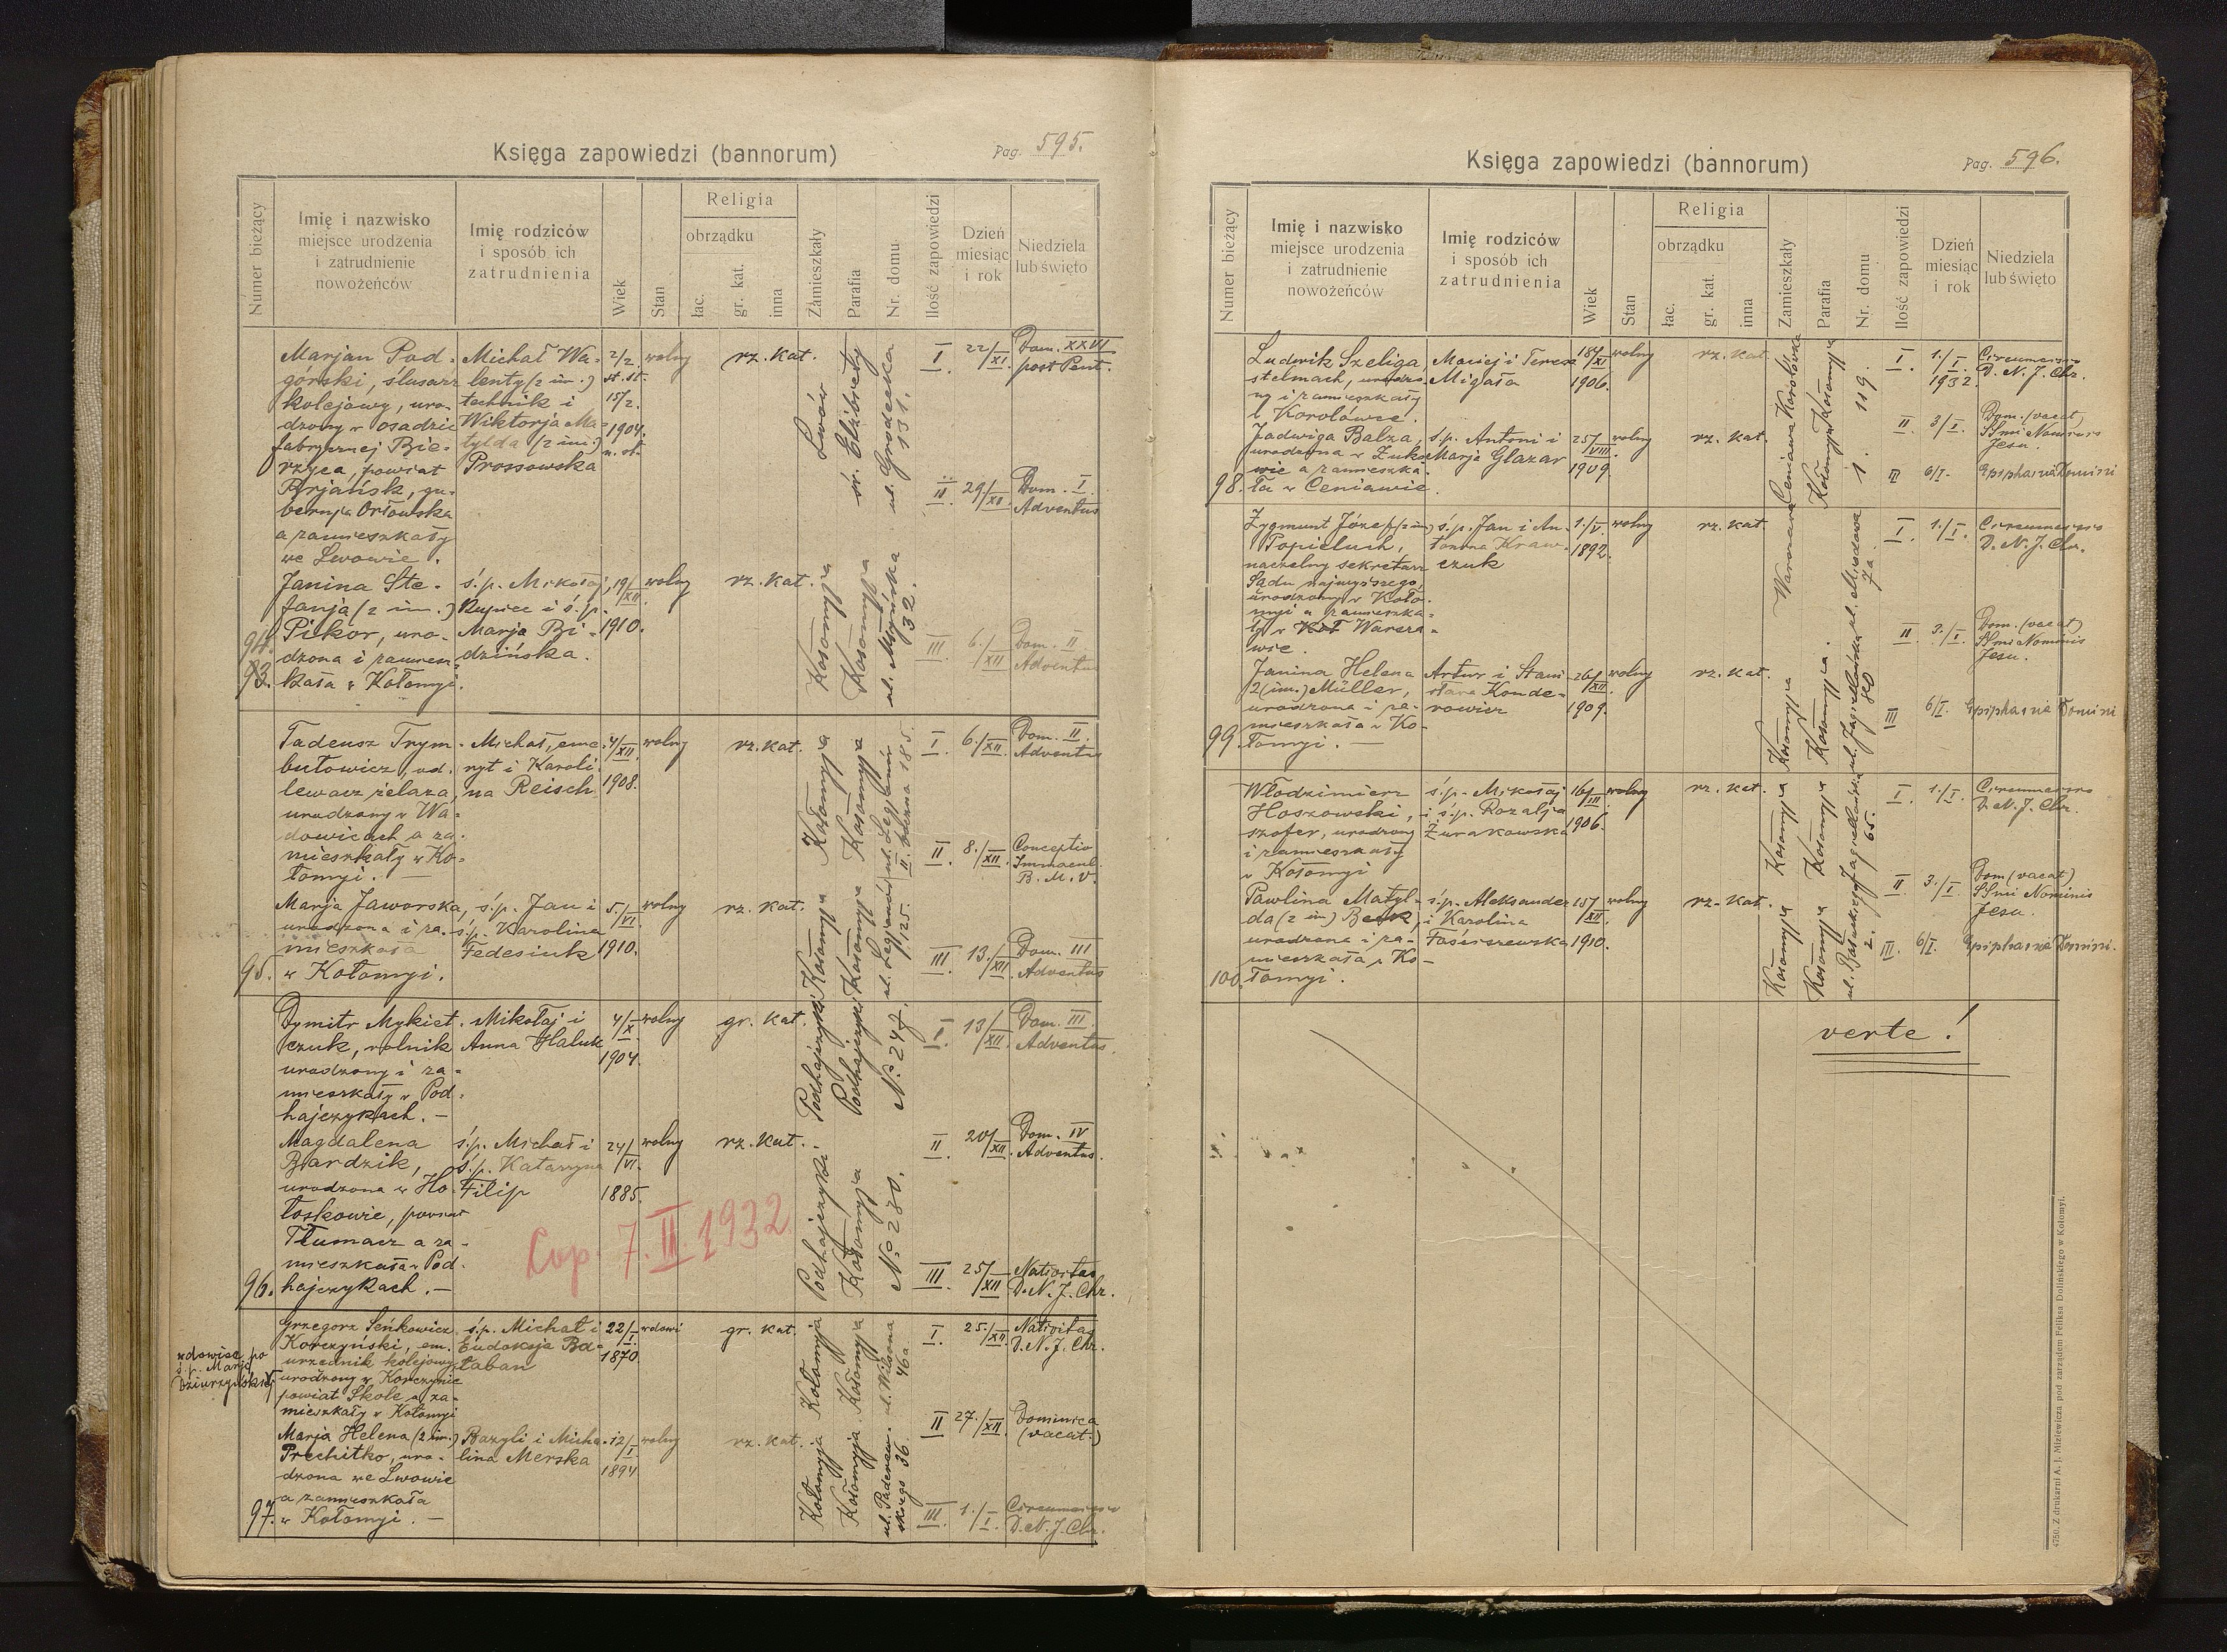 Księga zapowiedzi (bannorum)
Pag. 595.
Numer bieżący
Imię i nazwisko
miejsce urodzenia
i zatrudnienie
nowożeńców
Imię rodziców
i sposób ich
zatrudnienia
Wiek
Stan
Religia
obrządku
łac.
gr. kat.
inna
Zamieszkały
Parafia
Nr. domu
Ilość zapowiedzi
Dzień
miesiąc
i rok
Niedziela
lub święto
Marjan Pod-
górski, ślusarz
kolejowy, uro-
dzony w osadzie
fabrycznej Bie-
rzyca, powiat
Brjańsk, gu-
bernja Orłowska
a zamieszkały
we Lwowie.
Michał Wa-
lenty (2 im.)
technik i
Wiktorja Ma-
tylda (2 im.)
Prossowska
2/2.
st. st.
15/2.
1904.
n. st.
wolny
rz. kat.
Lwów
św. Elżbiety
ul. Grodecka
131.
I. 22/XI. Dom. XXVI
post Pent.
II. 29/XI. Dom. I.
Adventus
Janina Ste-
fanja (2 im.)
Pikor, uro-
dzona i zamiesz-
kała w Kołomyi.
94.
93.
ś.p. Mikołaj,
kupiec i ś.p.
Marja Bi-
dzińska.
19/XII.
1910.
wolny
rz. kat.
Kołomyja
Kołomyja
ul. Młyńska
32.
III. 6./XII Dom. II
Adventus
Tadeusz Trym-
butowicz, od-
lewacz żelaza,
urodzony w Wa-
dowicach a za-
mieszkały w Ko-
łomyi. —
Michał, eme-
ryt i Karoli-
na Reisch
4/XII
1908.
wolny
rz. kat.
Kołomyja
Kołomyja
ul. Legionów
185.
I. 6./XII. Dom. II.
Adventus
II. 8./XII. Conceptio
Immacul.
B. M. V.
Marja Jaworska,
urodzona i za-
mieszkała
w Kołomyi.
95.
ś.p. Jan i
ś.p. Karolina
Fedesiuk
5./VI.
1910.
wolny
rz. kat.
Kołomyja
Kołomyja
ul. Legionów
125.
III 13./XII. Dom. III
Adventus
Dymitr Mykiet-
czuk, rolnik
urodzony i za-
mieszkały w Pod-
hajczykach. —
Mikołaj i
Anna Haluk
4/X
1904.
wolny
gr. kat.
Podhajczyki
Podhajczyki
No. 247.
I. 13/XII. Dom. III.
Adventus.
II. 20/XII. Dom. IV
Adventus.
Magdalena
Bardzik,
urodzona w Ho-
łoskowie, powiat
Tłumacz a za-
mieszkała w Pod-
hajczykach. —
96.
ś.p. Michał i
ś.p. Katarzyna
Filip
24/VI.
1885.
wolny
rz. kat.
Podhajczyki.
Kołomyja
No. 280.
III. 25/XII Nativitas
D. N. J. Chr.
Cop. 7. II. 1932
Grzegorz Seńkowicz
Korczyński, em.
urzędnik kolejowy
urodzony w Korczynie
powiat Skole a za-
mieszkały w Kołomyi
wdowiec po
ś.p. Marji
Dziurzyńskiej
ś.p. Michał i
Eudoksja Ba-
łaban
22/I
1870.
wdowi
gr. kat.
Kołomyja
Kołomyja
ul. Wilsona
46a.
I. 25./XII. Nativitas
D. N. J. Chr.
II 27./XII. Dominica
(vacat.)
Marja Helena (2 im.)
Prechitko, uro-
dzona we Lwowie
a zamieszkała
w Kołomyi. —
97.
Bazyli i Micha-
lina Merska
12/I
1894
wolny
rz. kat.
Kołomyja
Kołomyja
ul. Paderew-
skiego 36.
III. 1./I. Circumcisio
D. N. J. Chr.
Księga zapowiedzi (bannorum)
Pag. 596.
Numer bieżący
Imię i nazwisko
miejsce urodzenia
i zatrudnienie
nowożeńców
Imię rodziców
i sposób ich
zatrudnienia
Wiek
Stan
Religia
obrządku
łac.
gr. kat.
inna
Zamieszkały
Parafia
Nr. domu
Ilość zapowiedzi
Dzień
miesiąc
i rok
Niedziela
lub święto
Ludwik Szeliga,
stelmach, urodzo-
ny i zamieszkały
w Korolówce.
Maciej i Teresa
Migała
18/XI
1906.
wolny
rz. kat.
Korolówka
Kołomyja
119.
I. 1./I. Circumcisio
1932. D. N. J. Chr.
II. 3/I. Dom. (vacat)
SSmi Nominis
Jesu.
Jadwiga Balza,
urodzona w Żuko-
wie a zamieszka-
ła w Ceniawie.
98.
ś.p. Antoni i
Marja Glazar
25/VIII.
1909.
wolny
rz. kat.
Ceniawa
Kołomyja
1.
III 6/I. Epiphania Domini
Zygmunt Józef (2 im)
Popieluch,
naczelny sekretarz
Sądu najwyższego,
urodzony w Koło-
myi a zamieszka-
ły w Warsza-
wie.
ś.p. Jan i An-
tonina Kraw-
czuk
1./V.
1892.
wolny
rz. kat.
Warszawa
ul. Miodowa
7a.
I. 1./I. Circumcisio
D. N. J. Chr.
II 3./I. Dom. (vacat)
SSmi Nominis
Jesu.
Janina Helena
2 (im.) Müller,
urodzona i za-
mieszkała w Ko-
łomyi. —
99.
Artur i Stani-
sława Konde-
rowicz
26/XII
1909.
wolny
rz. kat.
Kołomyja
Kołomyja.
ul. Jagiellońska
80
III 6/I. Epiphania Domini
Włodzimierz
Hoszowski,
szofer, urodzony
i zamieszkały
w Kołomyi
ś.p. Mikołaj
i ś.p. Rozalja
Żurakowska
16/III
1906.
wolny
rz. kat.
Kołomyja
Kołomyja
ul. Jagiellońska
65.
I. 1./I. Circumcisio
D. N. J. Chr.
II 3./I. Dom (vacat)
SSmi Nominis
Jesu.
Pawlina Matyl-
da (2 im) Beck,
urodzona i za-
mieszkała w Ko-
łomyi.
100.
ś.p. Aleksander
i Karolina
Tośiszewska
15/XII.
1910.
wolny
rz. kat.
Kołomyja
Kołomyja
2.
III. 6/I. Epiphania Domini.
verte!
4750. Z drukarni A. J. Miziewicza pod zarządem Feliksa Dolińskiego w Kołomyi.